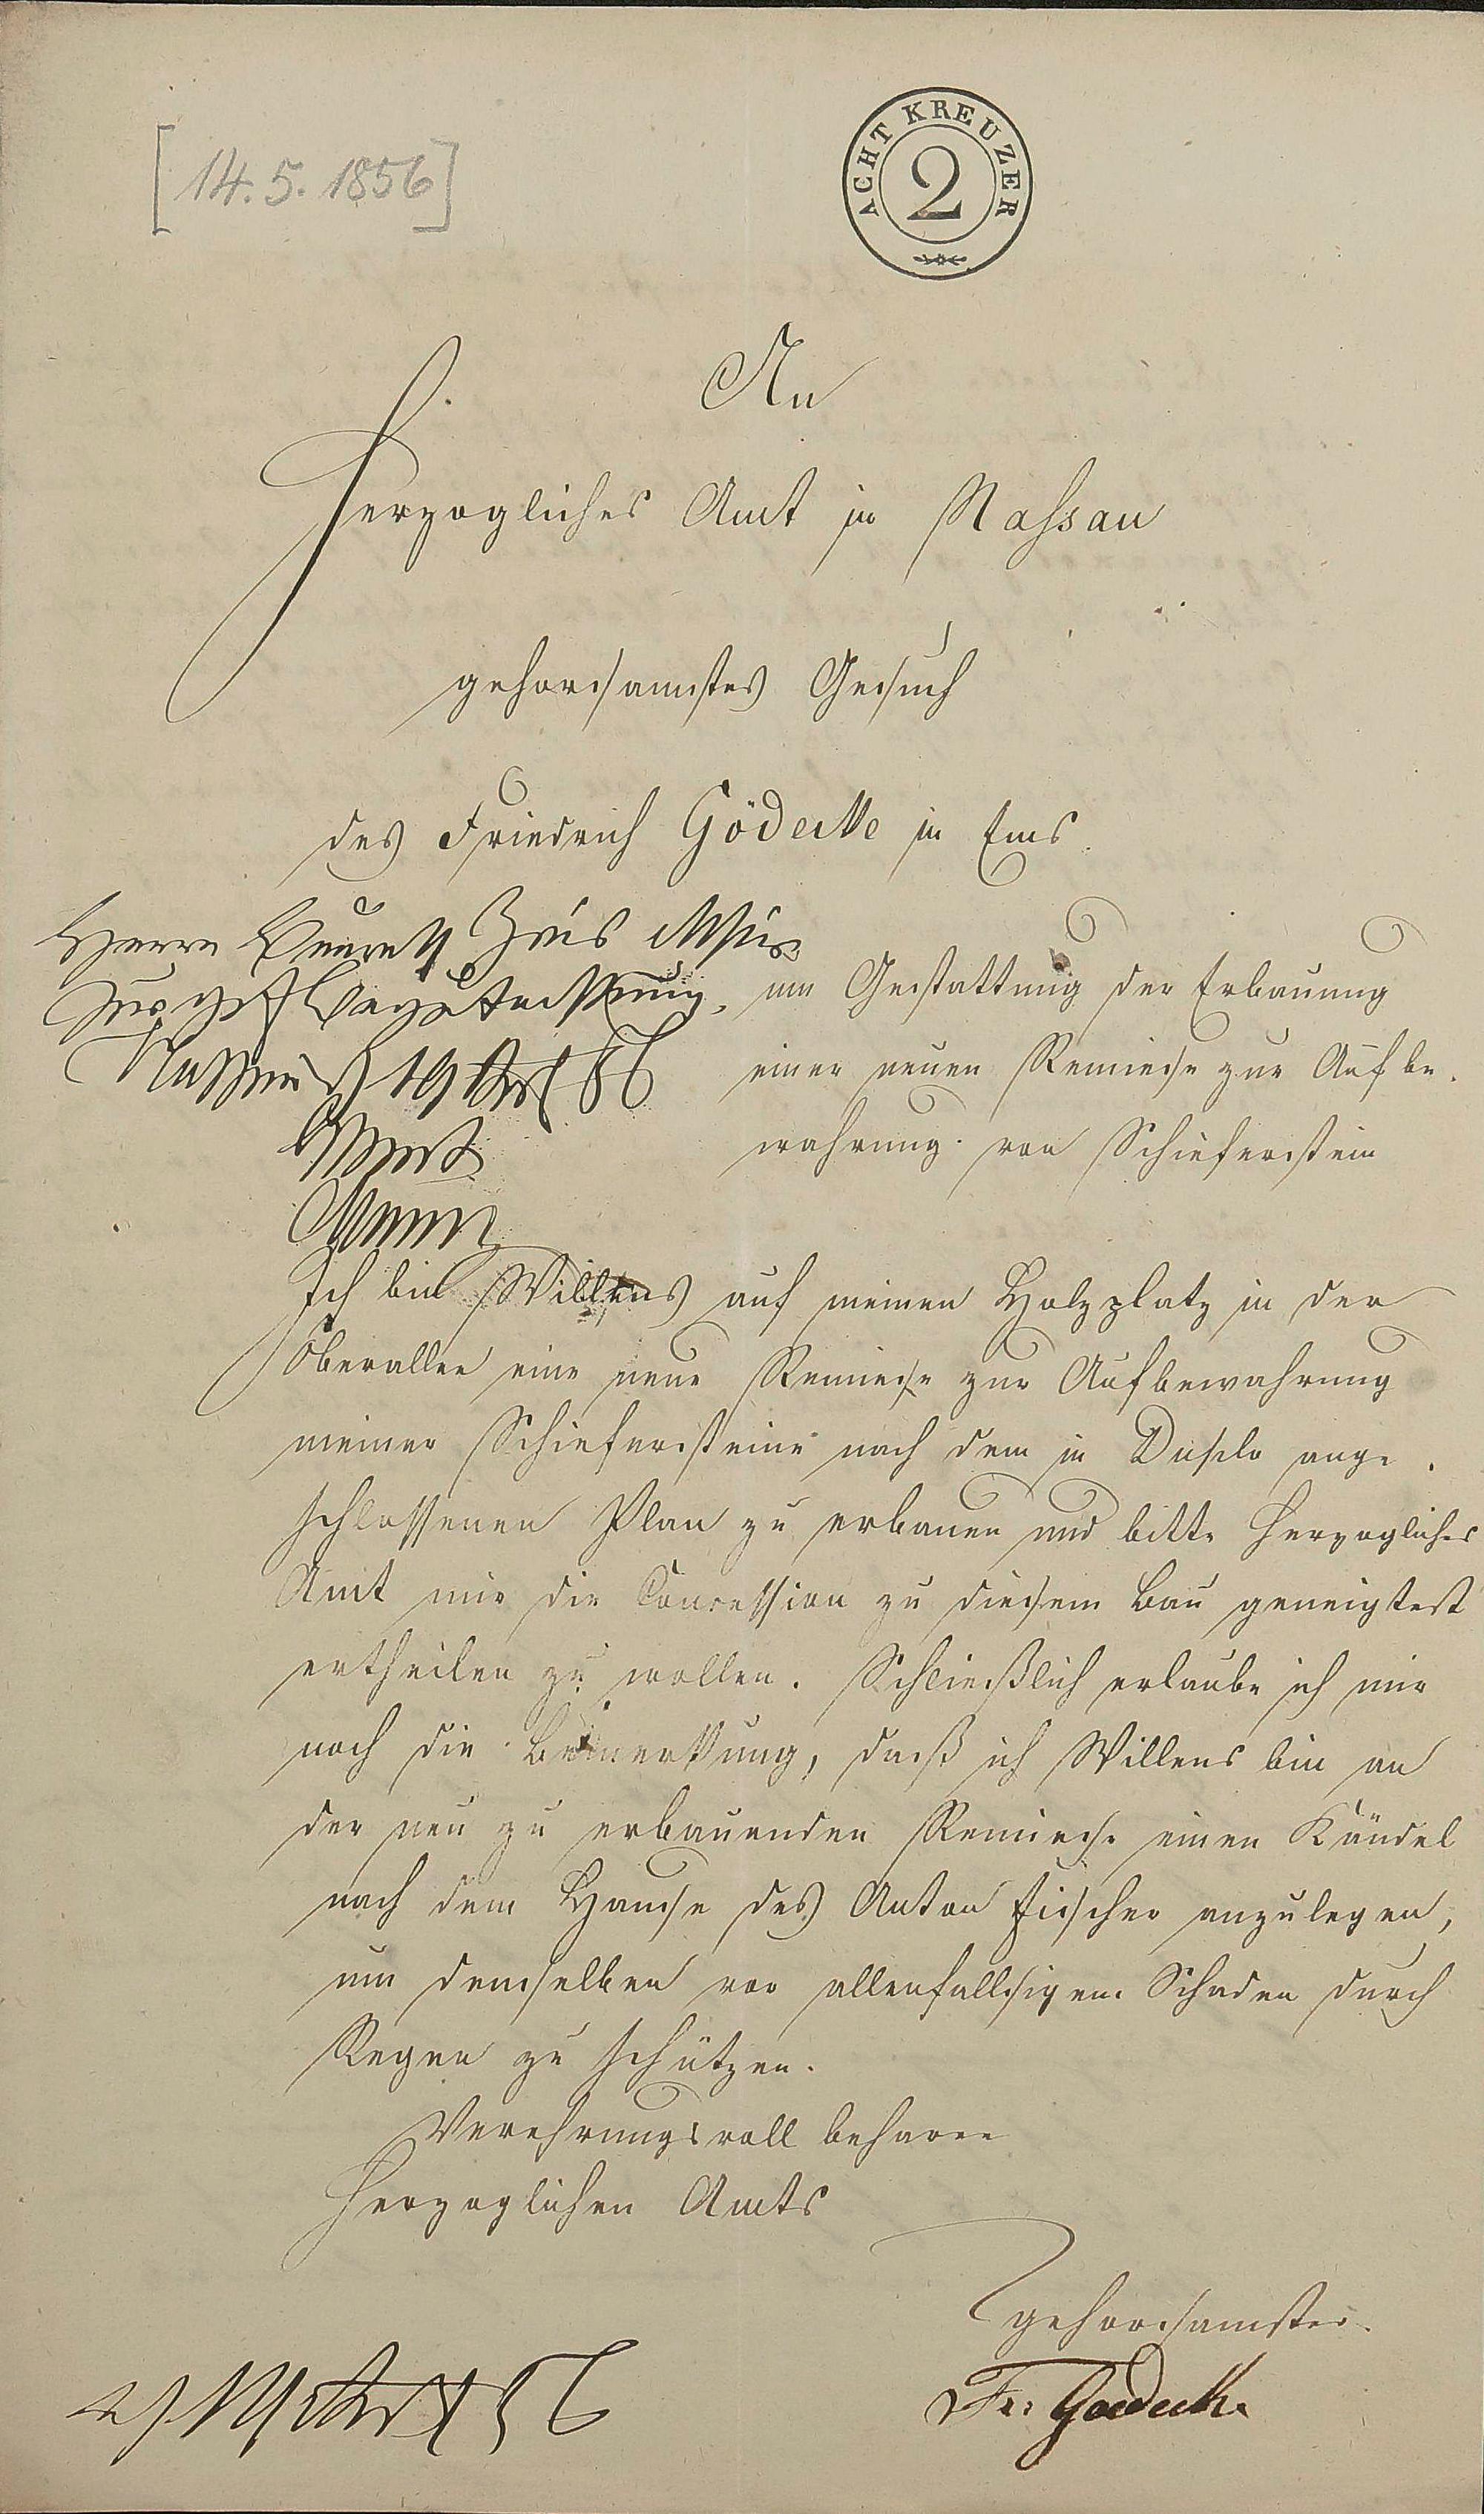 [14.5.1856]
ACHT KREUZER
2
An
Herzogliches Amt in Nassau
gehorsamstes Gesuch
des Friedrich Gödecke in Ems.
Herrn
zur gef
Nassau d 19 56
um Gestattung der Erbauung
einer neuen Remiese zur Aufbe-
wahrung von Schieferstein
Ich bin Willens auf meinen Holzplatz in der
Oberallee eine neue Remiese zur Aufbewahrung
meiner Schiefersteine nach dem in Duplo ange-
schlossenen Plan zu erbauen und bitte Herzogliches
Amt mir die Concession zu diesem Bau geneigtest
ertheilen zu wollen. Schließlich erlaube ich mir
noch die Bemerkung, daß ich Willens bin an
der neu zu erbauenden Remiese einen Kändel
nach dem Hause des Anton Fischer anzulegen,
um denselben vor allenfallsigem Schaden durch
Regen zu schützen.
Verehrungsvoll beharre
Herzoglichen Amts
gehorsamster
Fr. Goedecke
56